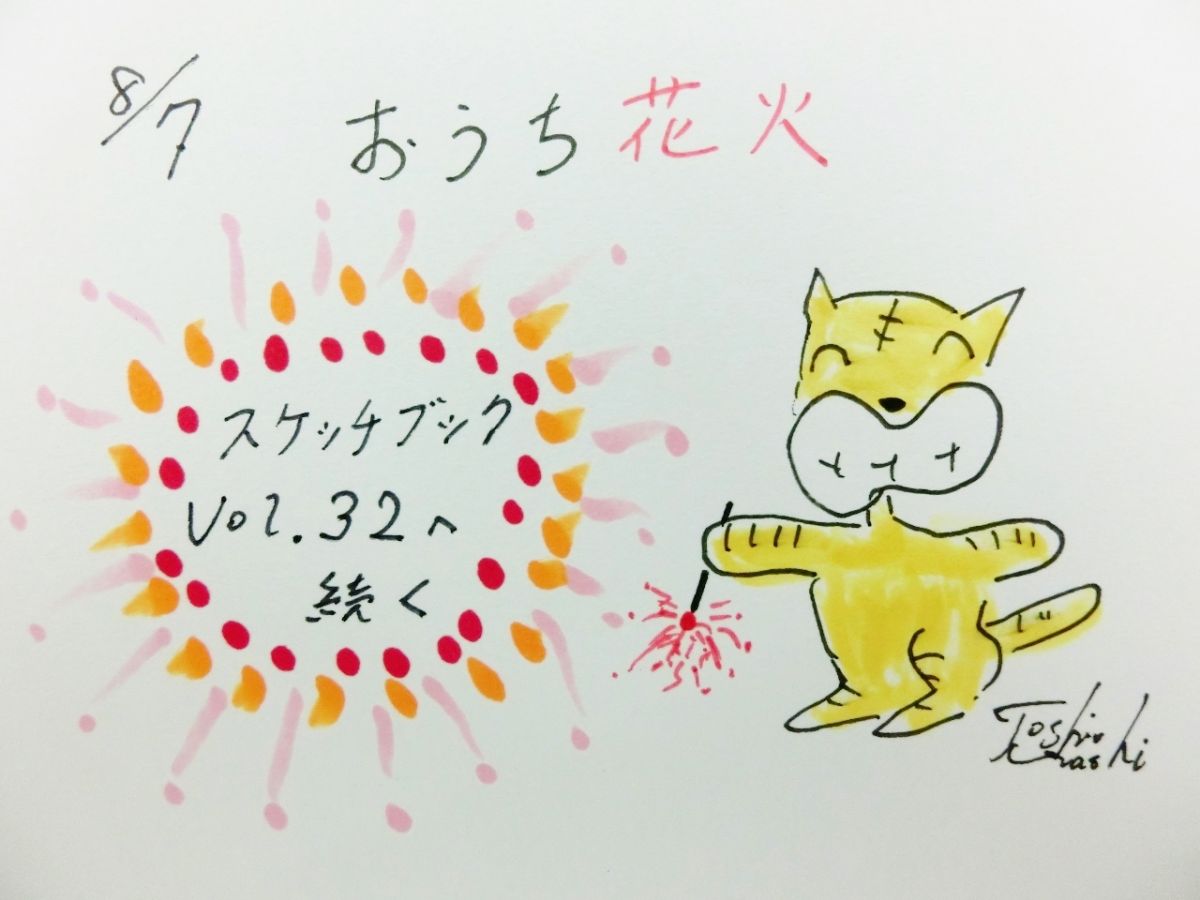 8/7
おうち花火
スケッチブック
Vol.32へ
続く
Toshio